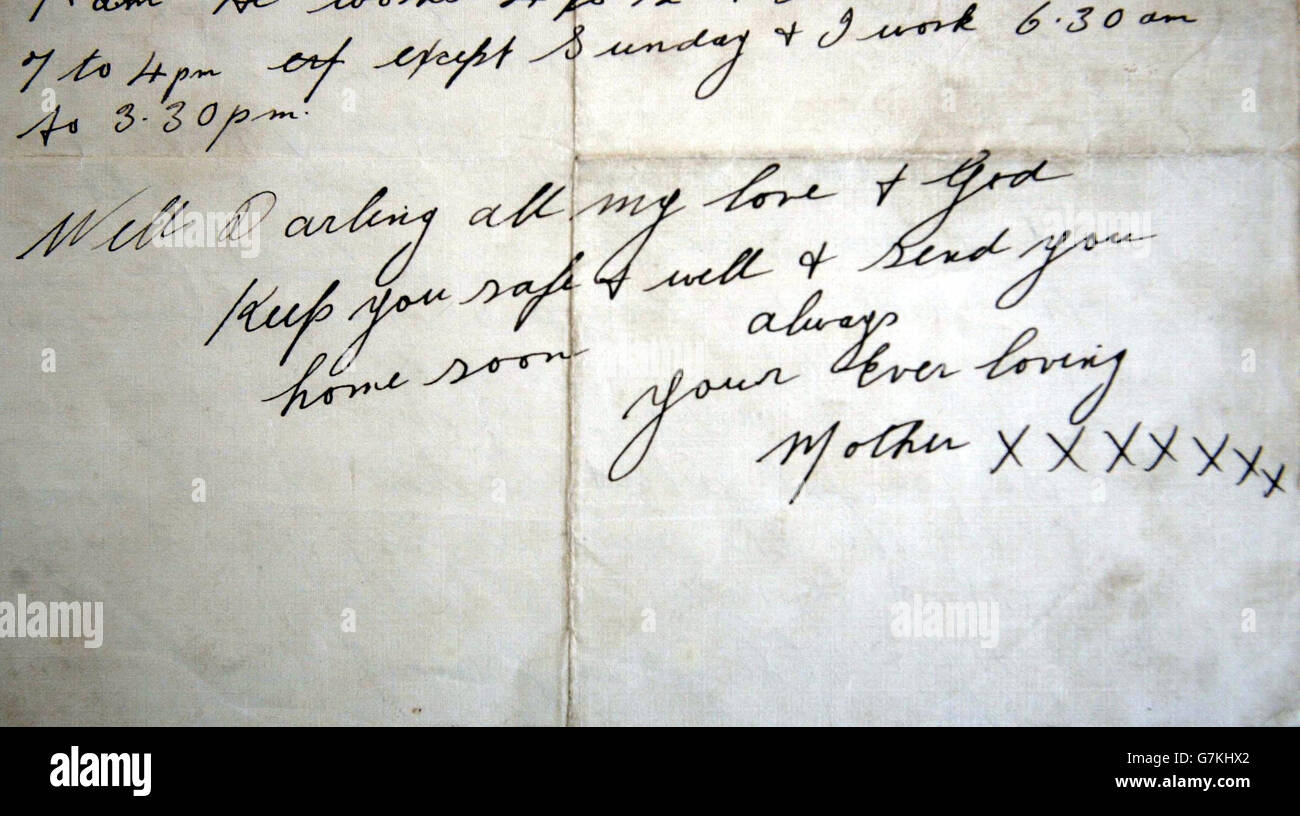 am He works
7 to 4pm except Sunday & I work 6.30 am
to 3.30pm.
Well Darling all my love & God
Keep you safe & well & send you
home soon always
your Ever loving
Mother X X X X X X X
alamy
a
alamy
Image ID: G7KHX2
www.alamy.com